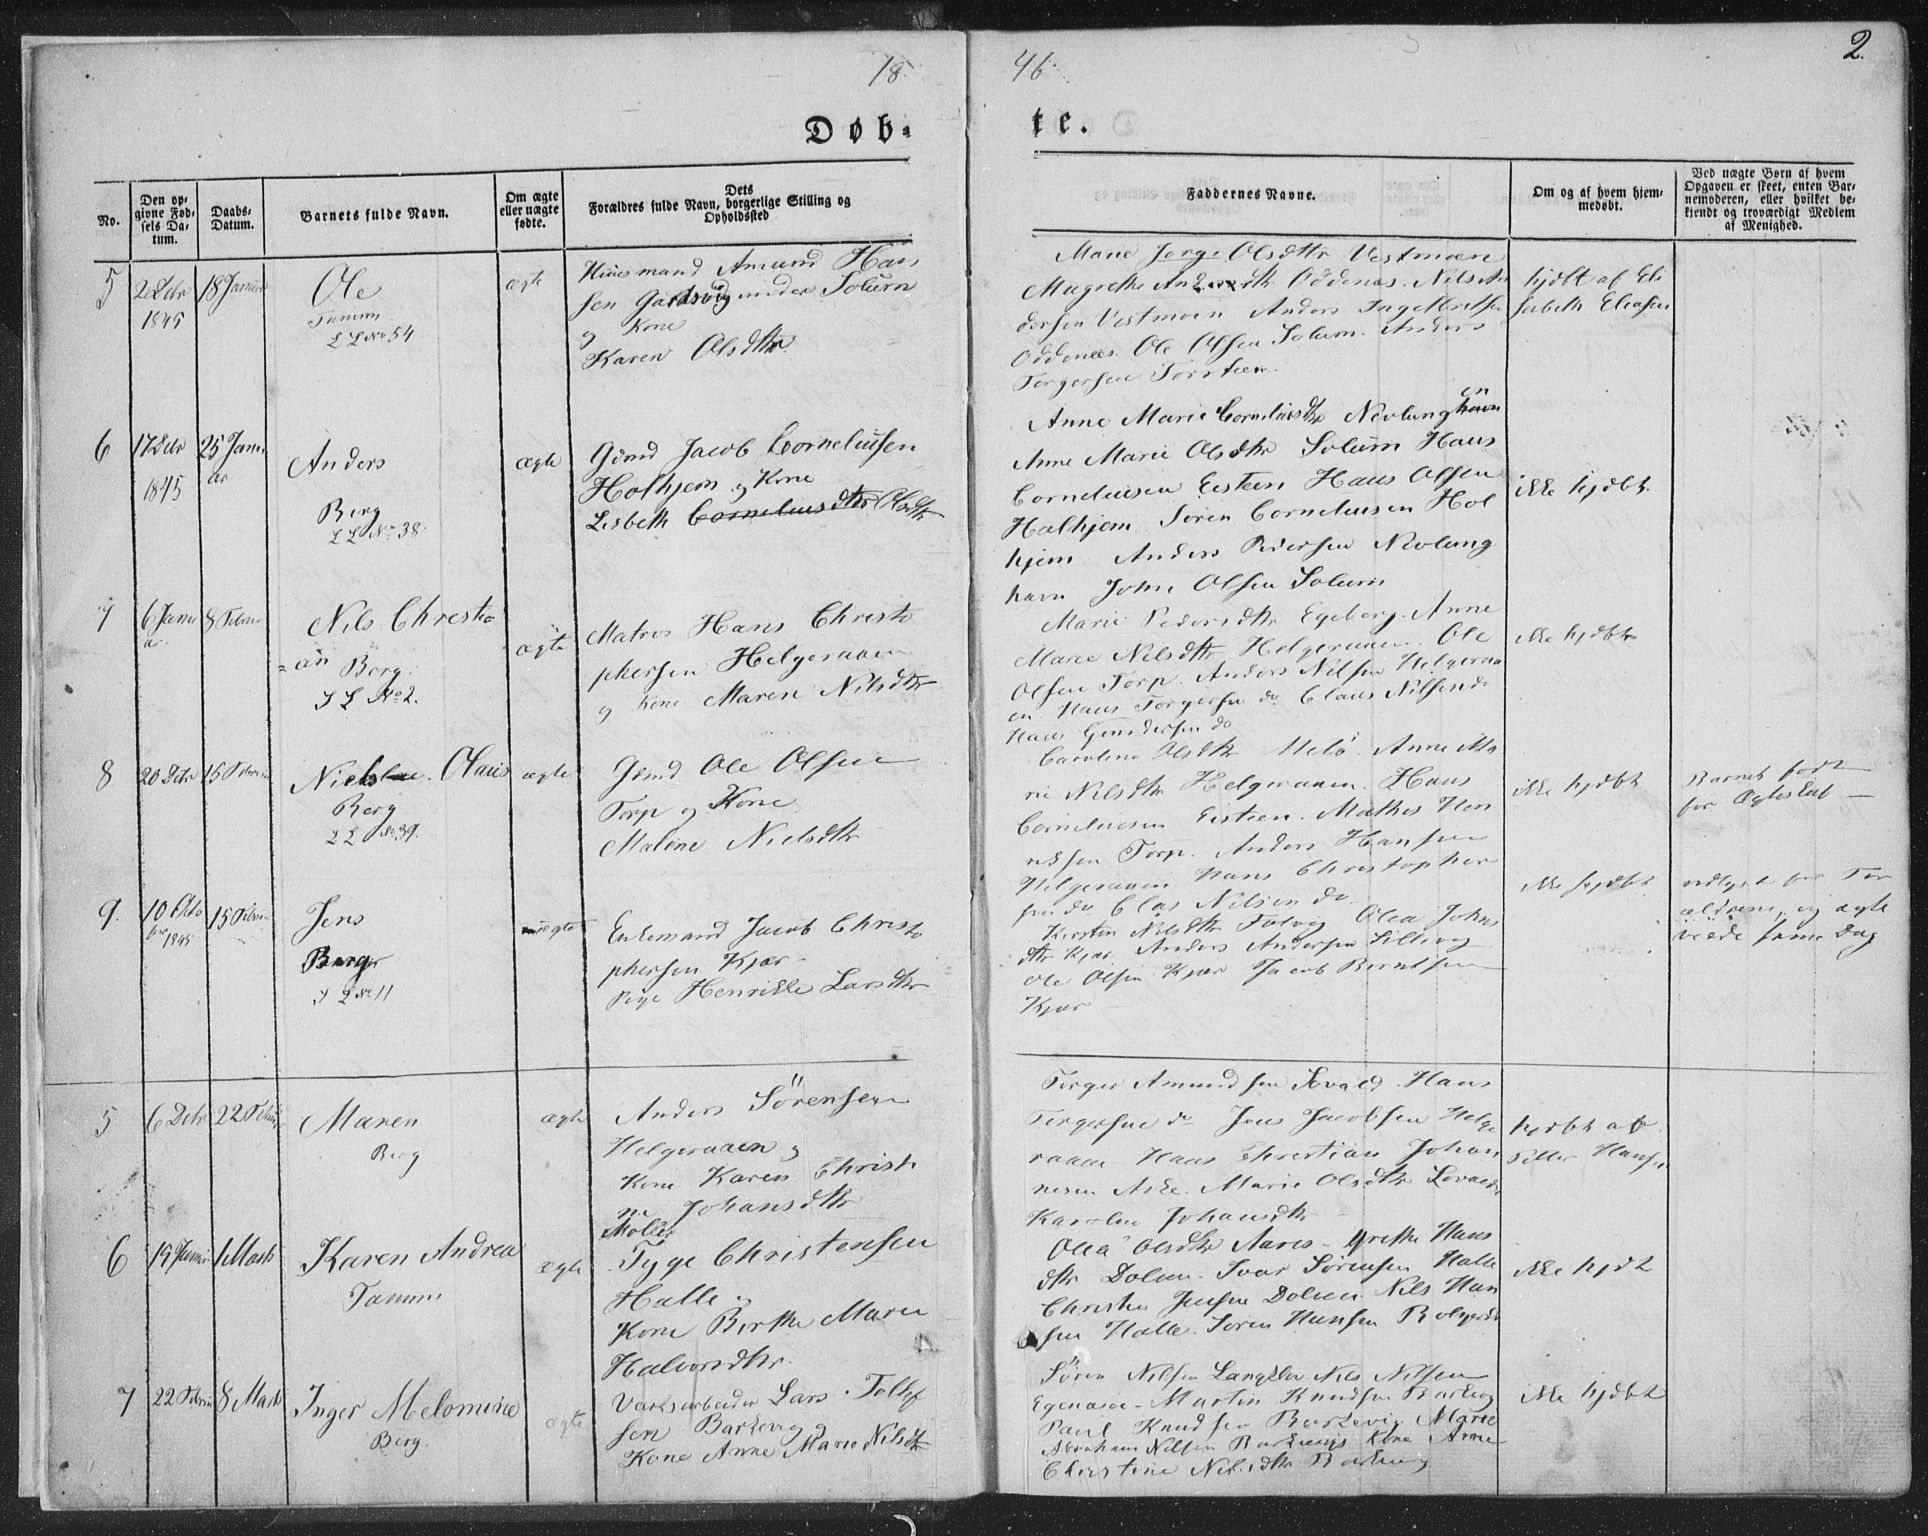 18
46
2.
Døb-
te.
No.
Den op-
givne Fød-
sels Da-
tum.
Daabs-
Datum.
Barnets fulde Navn.
Om ægte
eller uægte
fødte.
Dets
Forældres fulde Navn, borgerlige Stilling og
Opholdssted
Faddernes Navne.
Om og af hvem hjem-
medøbt.
Ved uægte Børn af hvem
Opgaven er skeet, enten Bar-
nemoderen, eller hvilket be-
kjendt og troværdigt Medlem
af Menighed.
5
1845
18 Januar
Ole
Tanum
L L No 54
ægte
Huusmand Amund Han
sen under Solum
og Kone
Karen Olsdtr
Marie Olsdtr Vestmoen
Oddenes. Nils An
dersen Vestmoen Anders Ingelbretsen
Oddenes. Ole Olsen Solum. Anders
Torgersen
hjdbt af Eli
sabeth Eliasen
6
17 Debr
1845
25 Janu
ar
Anders
Berg
L L No 38.
ægte
Gbmd Jacob Corneliusen
Holhjem og Kone
Lisbeth Corneliusdtr Olsdtr
Anne Marie Corneliusdtr Nevlunghavn
en
Anne Marie Olsdtr Solum Hans
Corneliusen Eisteen Hans Olsen
Holhjem Søren Corneliusen Hol
hjem Anders Pedersen Nevlung
havn John Olsen Solum
ikke hjdbt.
7
6 Janu
ar
8 Februar
Nils Christi
= an
Berg.
I L No 2.
ægte
Matros Hans Christo
phersen Helgeraaen
og Kone Maren Nilsdtr
Marie Pedersdtr Egeberg. Anne
Marie Nilsdtr Helgeraaen. Ole
Olsen Torp. Anders Nilsen Helgeraa
en. Hans Torgersen do Claus Nilsen do
Hans Gundersen do
ikke hjdbt
8
20 Debr
15 Februar
Niels Olaus
Berg
L L No 39.
ægte
Gbmd Ole Olsen
Torp og Kone
Malene Nielsdtr
Caroline Olsdtr Melø. Anne Ma
rie Nilsdtr Helgeraaen. Hans
Corneliusen Eisteen. Mathes Hen
riksen Torp. Anders Hansen
Helgeraaen Hans Christopher
sen do Clas Nilsen do
ikke hjdbt
Barnet født
før Ægteskab
9.
10 Octo
ber 1845
15 Februar
Jens
Berg
I L No 11
uægte
Enkemand Jacob Christo
phersen Kjær
Pige Henrikke Larsdtr
Kirsten Nilsdtr Olea Johns
dtr Kjær Anders Andersen
Ole Olsen Kjær Jacob Berntsen
Kjær
ikke hjdbt
udlagt for
og ægte
viede samme Dag
5
6 Debr
22 Februar
Maren
Berg
ægte
Anders Sörensen
Helgeraaen og
Kone Karen Christi
ne Johansdtr
Torger Amundsen Hans
Torgersen do Jens Jacobsen Helge
raaen Hans Christian Johan
nesen Aske. Marie Olsdtr
Karoline Johansdtr
hjdbt af
Peder Hansen
6
19 Januar
1 Marts
Karen Andrea
Tanum
ægte
Møller
Tyge Christensen
Halle og
Kone Birthe Marie
Halvorsdtr.
Olea Olsdtr Aarøs - Grethe Hans
dtr Dolven. Ivar Sørensen Halle
Christen Jensen Dolven Nils Han
sen Halle. Søren Hansen
ikke hjdbt
7
22 Februar
8 Marts
Inger Melomine
Berg.
ægte
Værksarbeider Lars Tollef
sen Barkevig og
Kone Anne Marie Nilsdtr
Søren Nilsen Nils Nilsen
Martin Knudsen Barkevig
Paul Knudsen Barkevig. Marie
Abraham Nilsen Barkevigs Kone Anne
Christine Nilsdtr Barkevig
ikke hjdbt